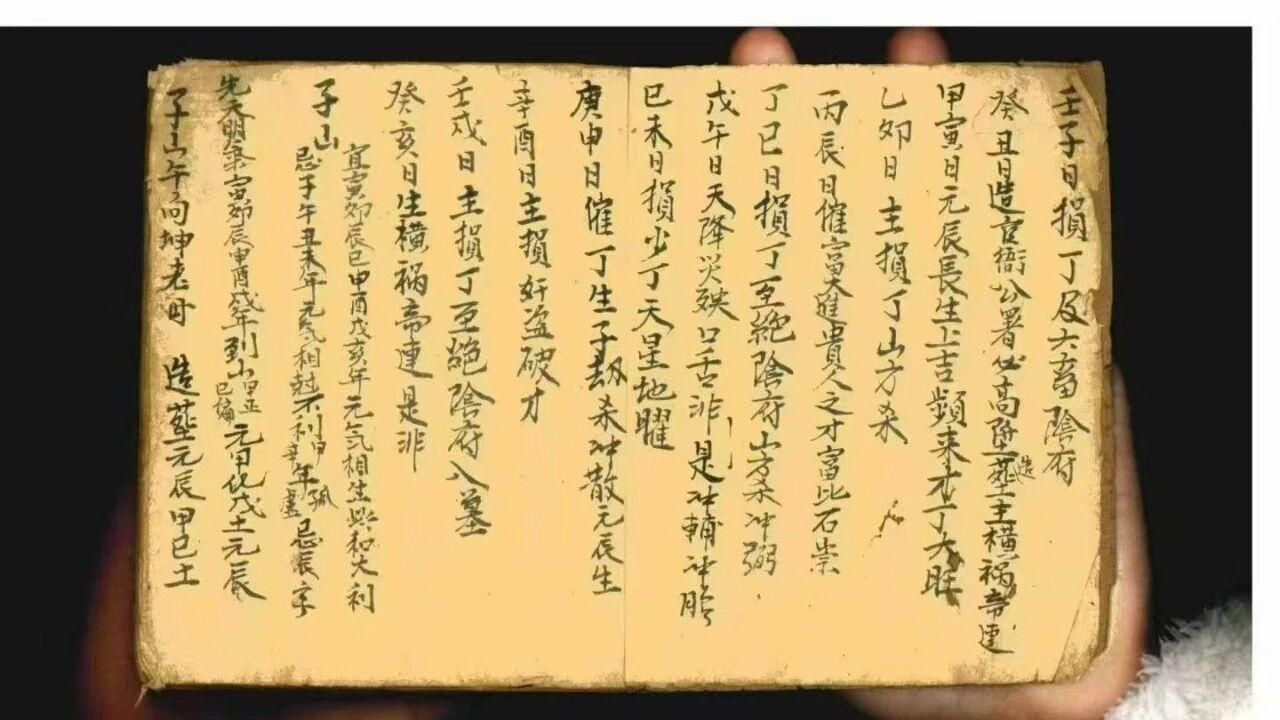 壬子日損丁及六畜陰府
癸丑日造官衙公署必高陞造塟主橫禍帝連
甲寅日元辰長生上吉頻来才丁大旺
乙夘日主損丁山方杀
丙辰日催富大進貴人之才富比石崇
丁巳日損丁至絶陰府山方杀冲弼
戊午日天降災殃口舌非是冲輔冲
已未日損少丁天星地曜
庚申日催丁生子刼杀冲散元辰生
辛酉日主損奸盗破才
壬戌日主損丁至絶陰府入墓
癸亥日生橫祸帝連是非
子山
宜寅夘辰巳申酉戌亥年元気相生此和大利
忌子午丑未年元気相尅不利甲辛年孤虚忌辰字
先天明宗寅夘辰申酉戌年到山甲正已偏元甲化戊土元辰
子山午向坤老母 造塟元辰甲巳土